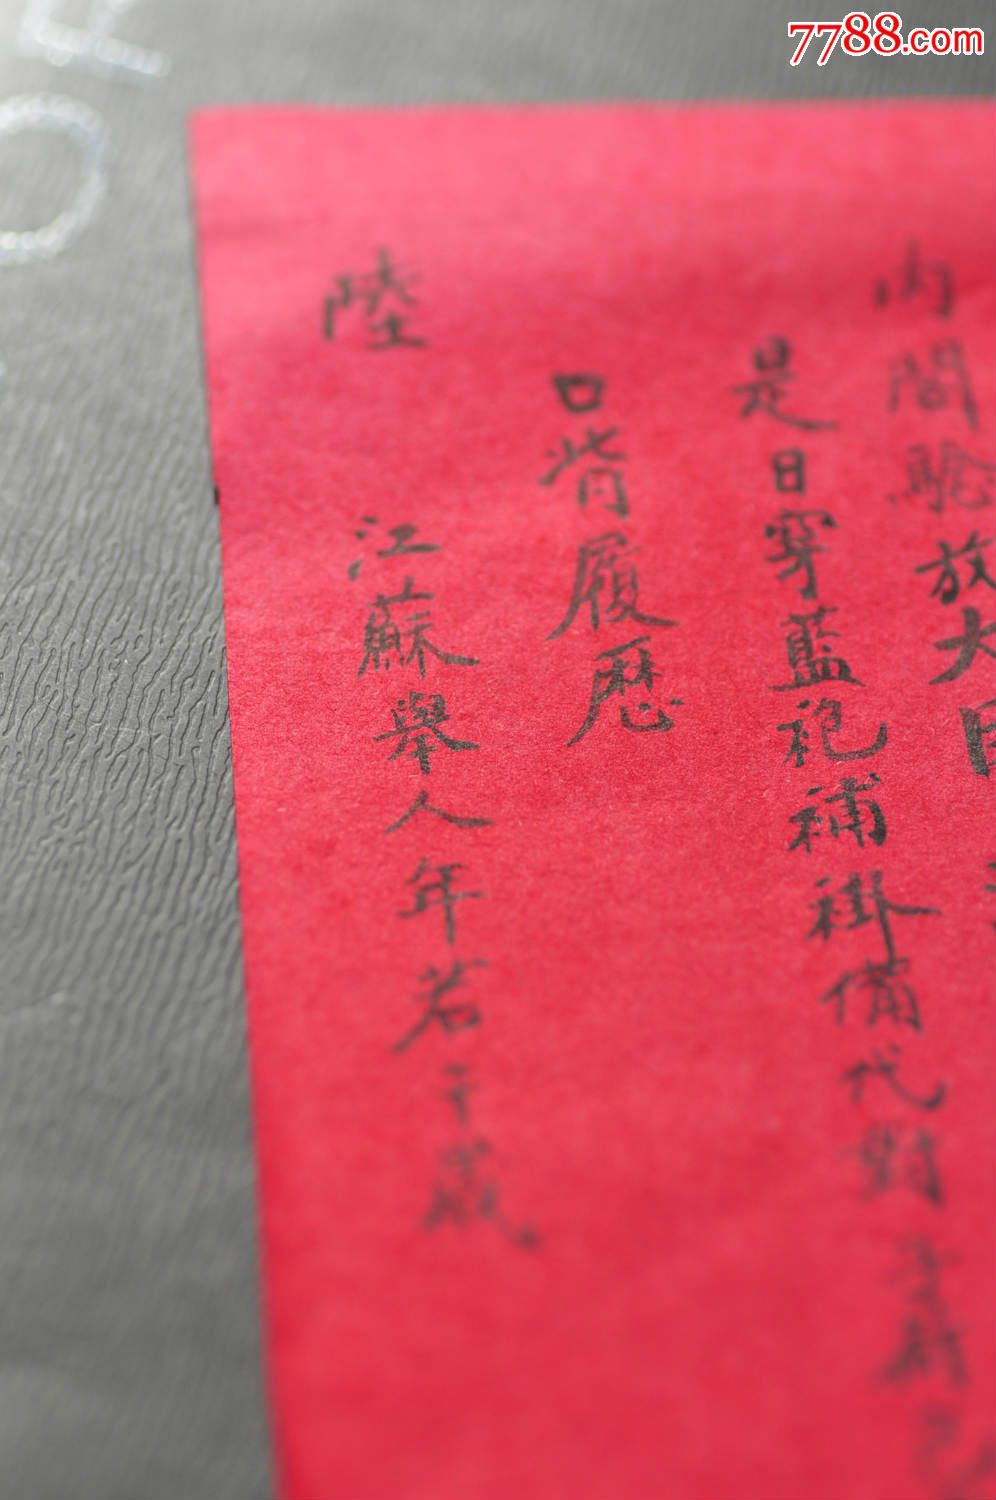 7788.com
内閣驗放大
是日穿藍袍補褂備代對
口背履歷
陸
江蘇舉人年若干歲